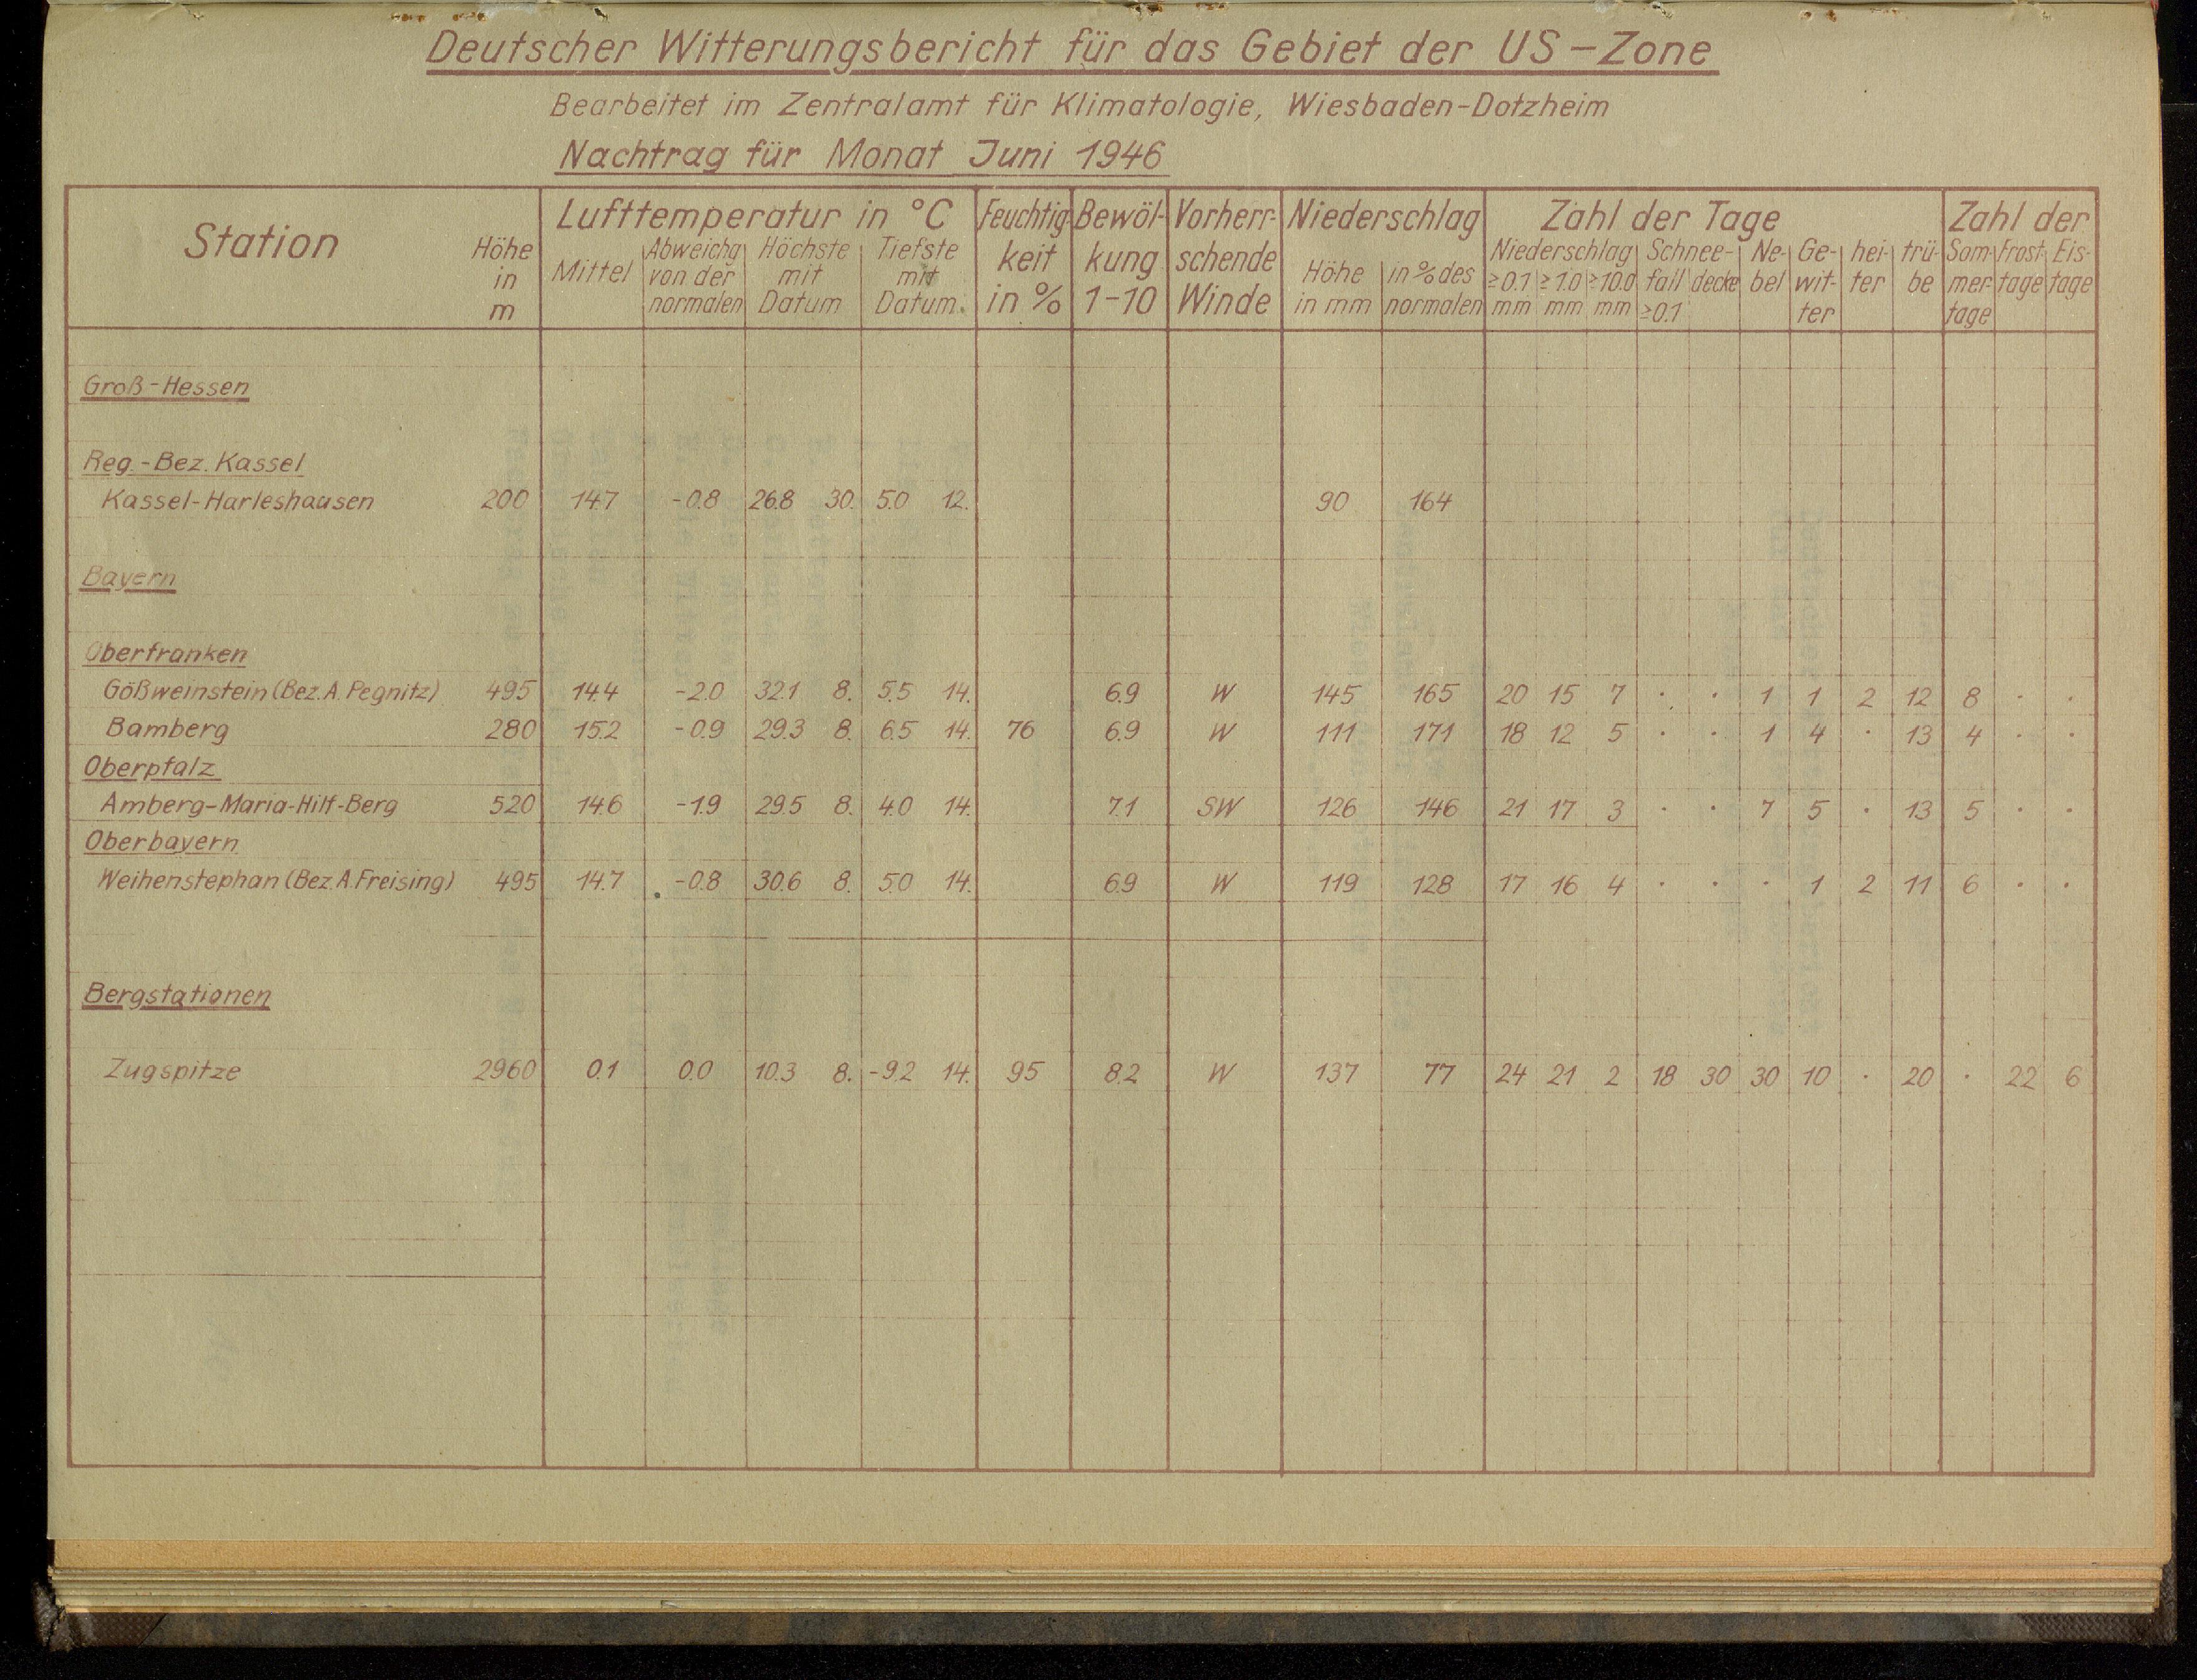 Deutscher Witterungsbericht für das Gebiet der US-Zone
Bearbeitet im Zentralamt für Klimatologie, Wiesbaden-Dotzheim
Nachtrag für Monat Juni 1946
Station Höhe in m Lufttemperatur in °C Mittel Abweichg von der normalen Höchste mit Datum Tiefste mit Datum Feuchtig- keit in % Bewöl- kung 1-10 Vorherr- schende Winde Niederschlag Höhe in mm in % des normalen Zahl der Tage Niederschlag ≥0.1 mm ≥1.0 mm ≥10.0 mm Schnee- fall ≥0.1 decke Ne- bel Ge- wit- ter hei- ter trü- be Zahl der Som- mer- tage Frost- tage Eis- tage
Groß-Hessen
Reg.-Bez. Kassel
Kassel-Harleshausen 200 14.7 -0.8 26.8 30. 5.0 12. 90 164
Bayern
Oberfranken
Gößweinstein (Bez. A. Pegnitz) 495 14.4 -2.0 32.1 8. 5.5 14. 6.9 W 145 165 20 15 7 . . 1 1 2 12 8 . .
Bamberg 280 15.2 -0.9 29.3 8. 6.5 14. 76 6.9 W 111 171 18 12 5 . . 1 4 . 13 4 . .
Oberpfalz
Amberg-Maria-Hilf-Berg 520 14.6 -1.9 29.5 8. 4.0 14. 7.1 SW 126 146 21 17 3 . . 7 5 . 13 5 . .
Oberbayern
Weihenstephan (Bez. A. Freising) 495 14.7 -0.8 30.6 8. 5.0 14. 6.9 W 119 128 17 16 4 . . . 1 2 11 6 . .
Bergstationen
Zugspitze 2960 0.1 0.0 10.3 8. -9.2 14. 95 8.2 W 137 77 24 21 2 18 30 30 10 . 20 . 22 6